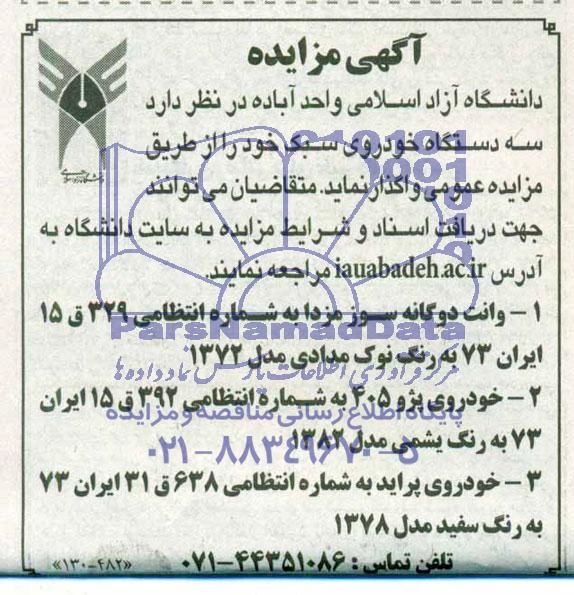 آگهی مزایده
دانشگاه آزاد اسلامی واحد آباده در نظر دارد
سه دستگاه خودروی سبک خود را از طریق
مزایده عمومی واگذار نماید. متقاضیان می توانند
جهت دریافت اسناد و شرایط مزایده به سایت دانشگاه به
آدرس iauabadeh.ac.ir مراجعه نمایند.
۱ - وانت دوگانه سوز مزدا به شماره انتظامی ۳۲۹ ق ۱۵
ParsNamadData
ایران ۷۳ به رنگ نوک مدادی مدل ۱۳۷۲
مرکز فرآوری اطلاعات پارس نماد داده ها
۲ - خودروی پژو ۴۰۵ به شماره انتظامی ۳۹۲ ق ۱۵ ایران
پایگاه اطلاع رسانی مناقصه و مزایده
۷۳ به رنگ یشمی مدل ۱۳۸۲
۰۲۱-۸۸۳۴۹۶۷۰-۵
۳ - خودروی پراید به شماره انتظامی ۶۳۸ ق ۳۱ ایران ۷۳
به رنگ سفید مدل ۱۳۷۸
تلفن تماس : ۴۴۳۵۱۰۸۶-۰۷۱
«۱۳۰-۴۸۲»